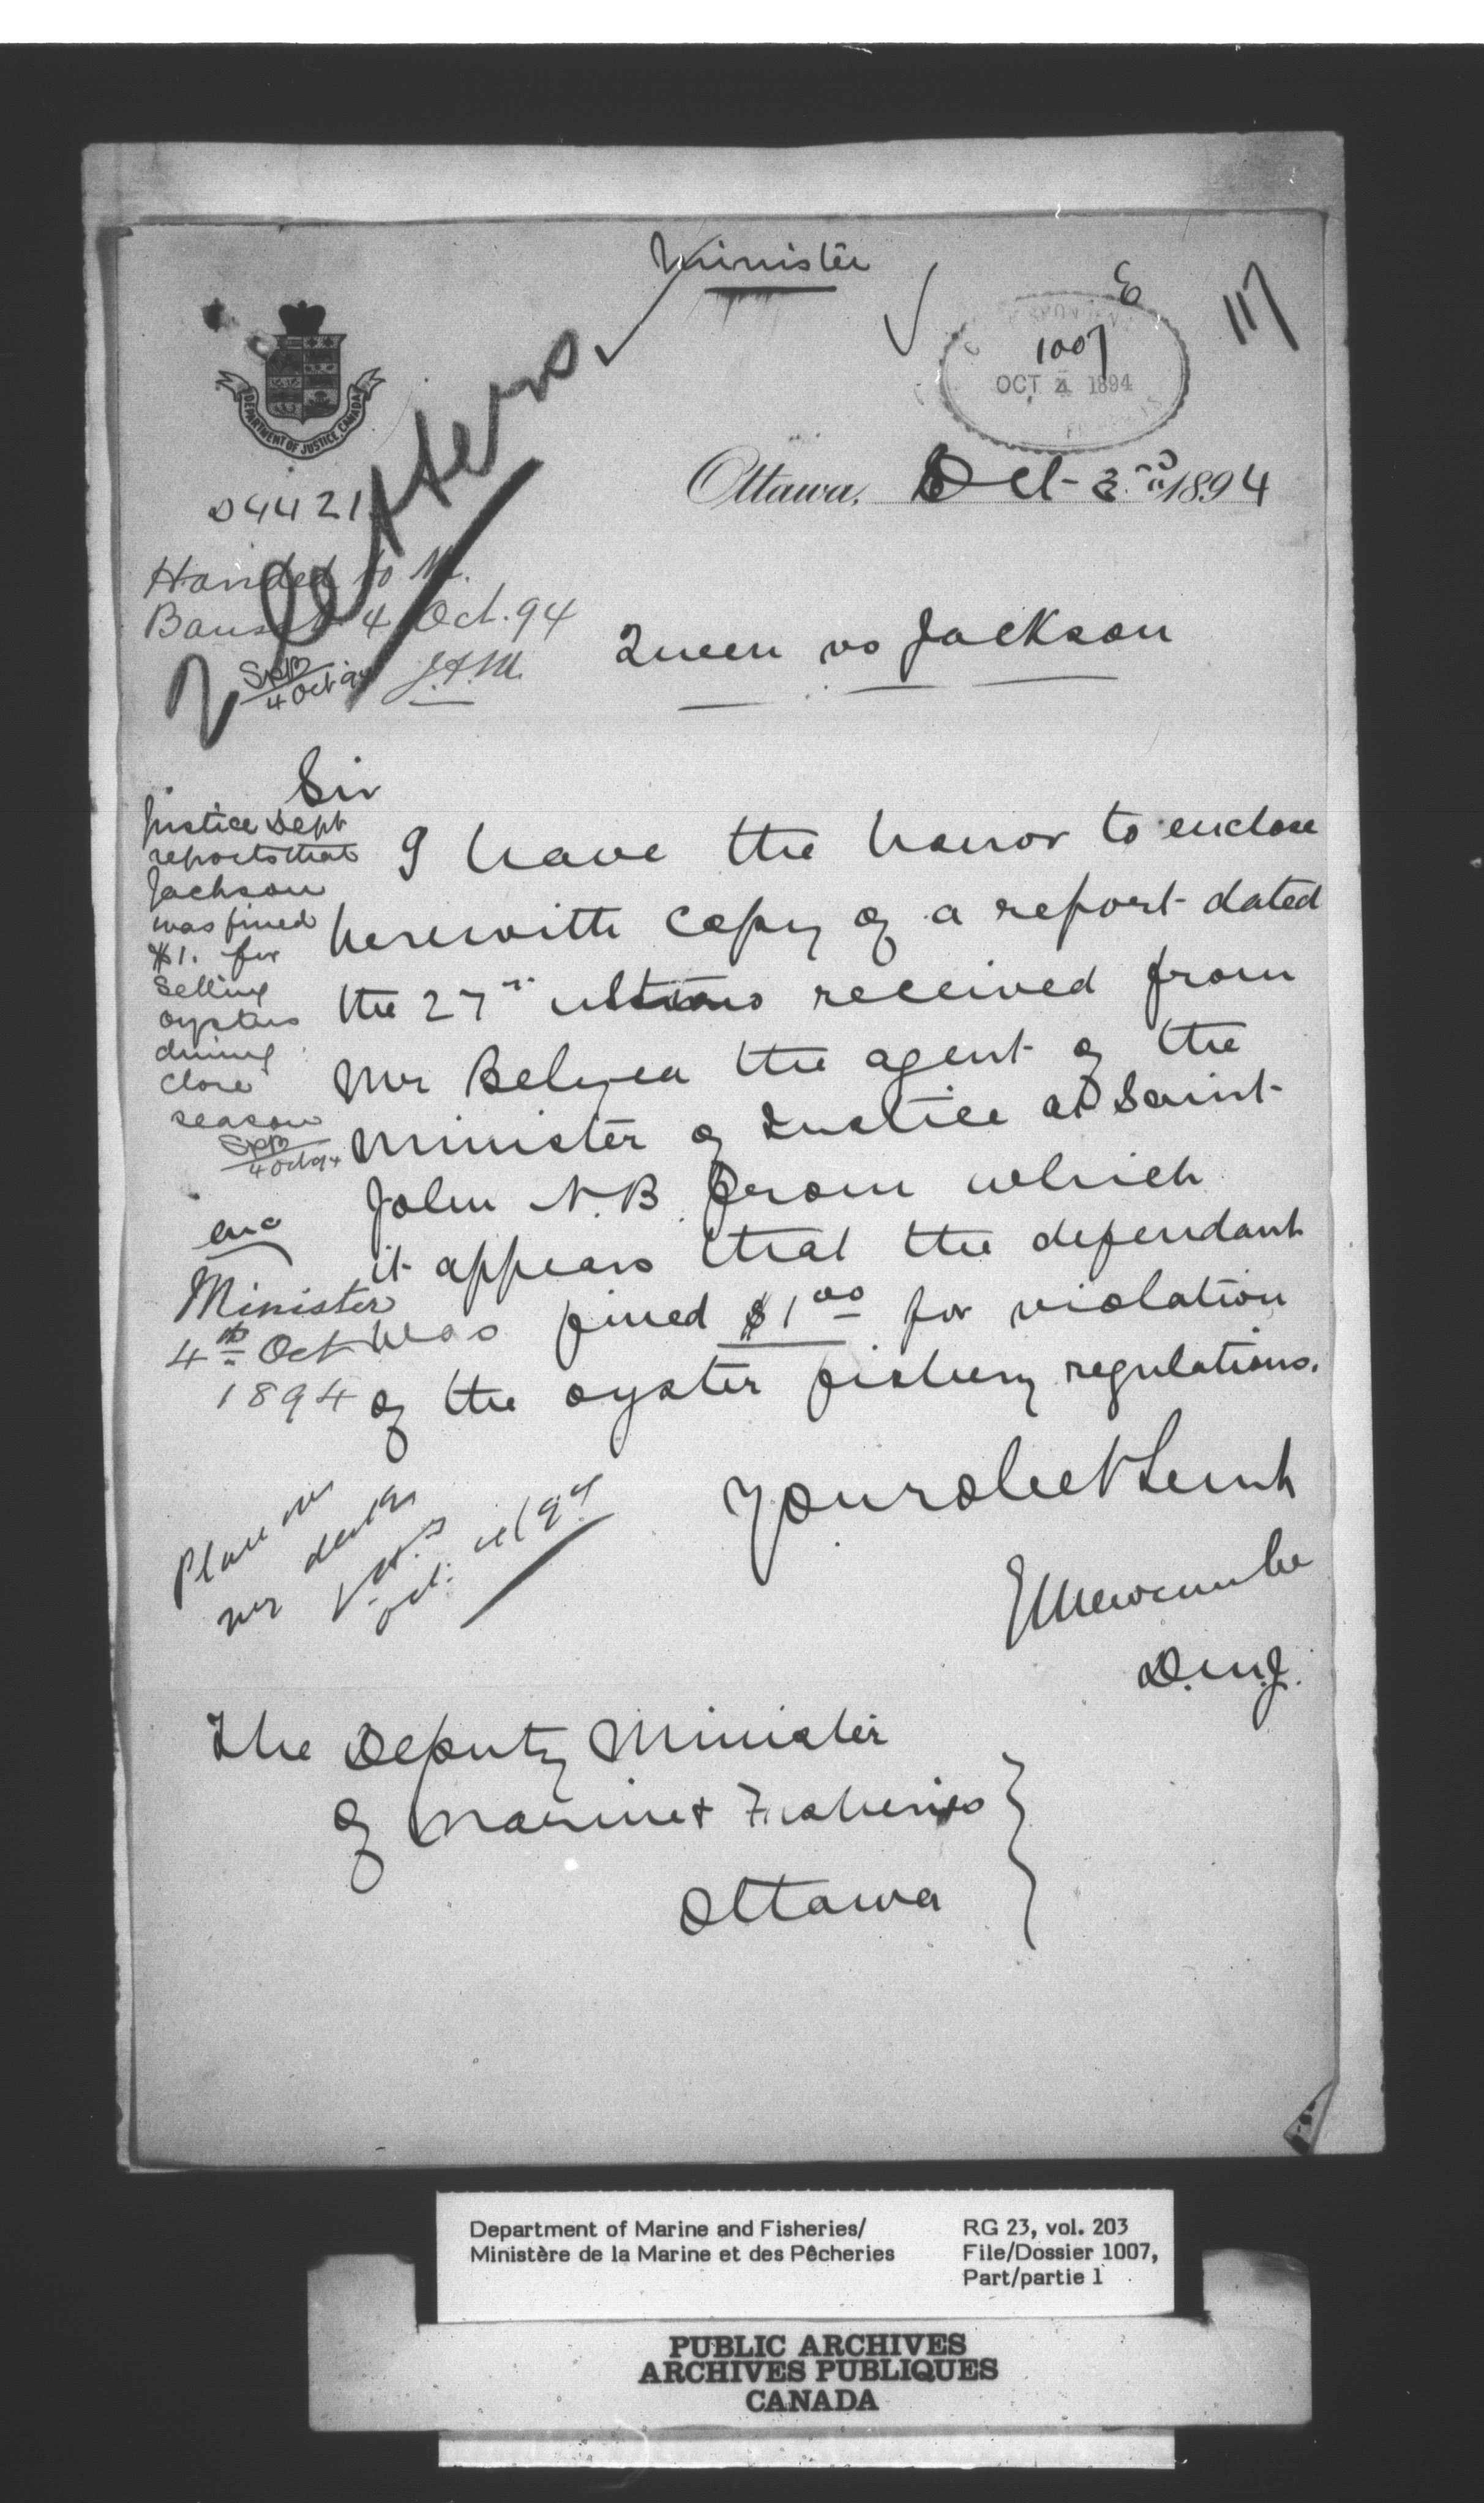 Minister
E
117
1007
OCT 4 1894
DEPARTMENT OF JUSTICE, CANADA
Letters
Ottawa, Oct 3rd 1894
D 442 1
Handed to M.
Bauset 4 Oct. 94
SPB
4 Oct 94
Queen vs Jackson
Sir
I have the honor to enclose
herewith copy of a report dated
the 27th ultimo received from
Mr Belyea the agent of the
Minister of Justice at Saint
John N.B. from which
it appears that the defendant
was fined $1.00 for violation
of the oyster fishery regulations.
Justice Dept
reports that
Jackson
was fined
$1. for
selling
oysters
during
close
season
SPB
4 Oct 94
enc
Minister
4th Oct
1894
Your obedt Servt
E L Newcombe
D.M.J.
The Deputy Minister
of Marine & Fisheries
Ottawa
Department of Marine and Fisheries/
Ministère de la Marine et des Pêcheries
RG 23, vol. 203
File/Dossier 1007,
Part/partie 1
PUBLIC ARCHIVES
ARCHIVES PUBLIQUES
CANADA